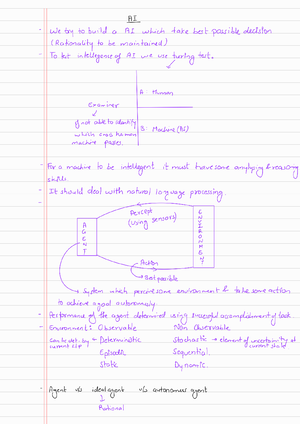 AI
- We try to build a AI which take best possible decision
(Rationality to be maintained)
- To test intellegence of AI we use turing test.
A: Human
Examiner
if not able to identify
which one human
machine passes.
B: Machine (AI)
- For a machine to be intellegent it must have some analyzing & reasoning
skills.
- It should deal with natural language processing.
-
Percept
(using sensors)
AGENT
ENVIRONMENT
Action
Best possible
System which percieve some environment & take some action
to achieve a goal autonomously.
- Performance of the agent determined using succesful accomplishment of task.
- Environment: Observable Non Observable
Can be det. by current st. Deterministic Stochastic → element of uncertainity at current state
Episodic Sequential.
Static Dynamic.
- Agent v/s ideal agent v/s autonomous agent
↓
Rational